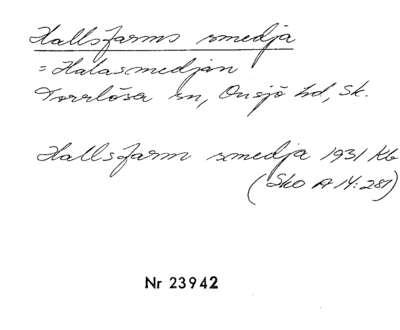 Hallsfarms smedja
= Halasmedjan
Torrlösa sn, Onsjö hd, Sk.
Hallsfarm smedja 1931 Kb
(Sko A 14:281)
Nr 23942